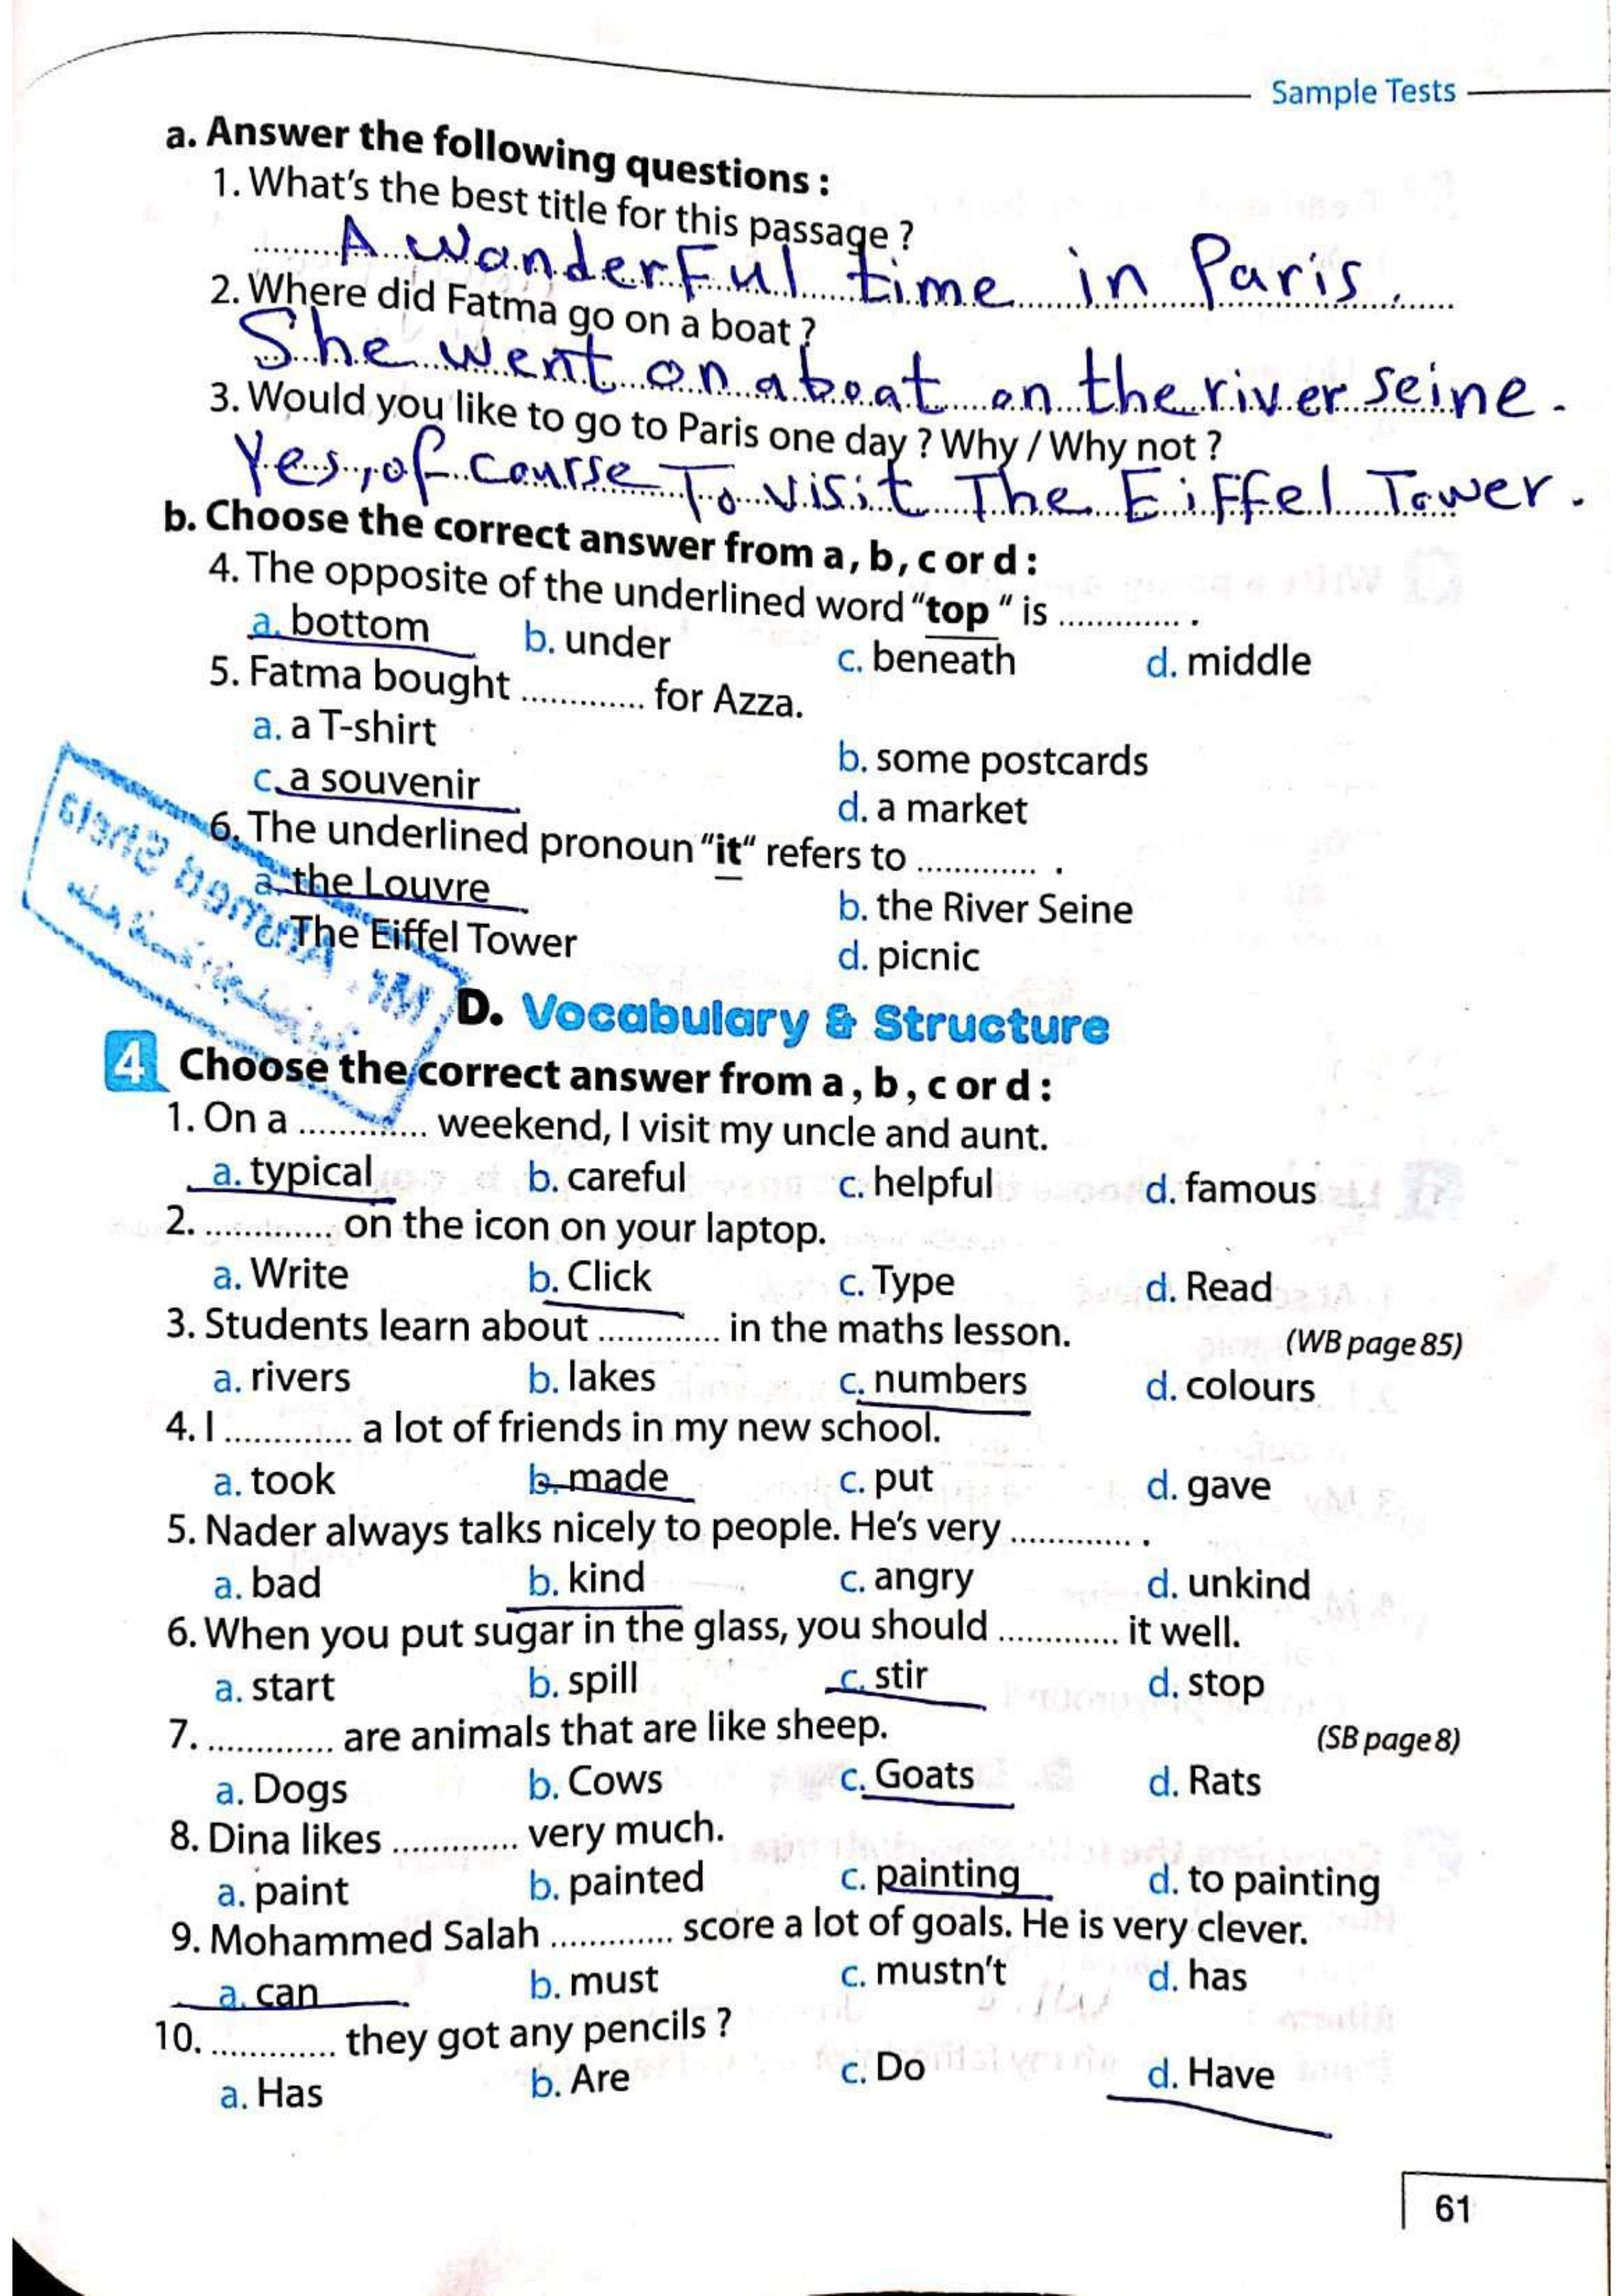 Sample Tests
a. Answer the following questions :
1. What's the best title for this passage ?
A wonderFul time in Paris.
2. Where did Fatma go on a boat ?
She went on a boat on the river seine.
3. Would you like to go to Paris one day ? Why / Why not ?
Yes, of courrse To visit The EiFFel Tower.
b. Choose the correct answer from a, b, c or d :
4. The opposite of the underlined word “top “ is ............. .
a. bottom b. under c. beneath d. middle
5. Fatma bought ............. for Azza.
a. a T-shirt b. some postcards
c. a souvenir d. a market
6. The underlined pronoun “it“ refers to ............. .
a. the Louvre b. the River Seine
c. The Eiffel Tower d. picnic
Mr. Ahmed Shela
D. Vocabulary & Structure
4 Choose the correct answer from a , b , c or d :
1. On a ............. weekend, I visit my uncle and aunt.
a. typical b. careful c. helpful d. famous
2. ............. on the icon on your laptop.
a. Write b. Click c. Type d. Read
3. Students learn about ............. in the maths lesson. (WB page 85)
a. rivers b. lakes c. numbers d. colours
4. I ............. a lot of friends in my new school.
a. took b. made c. put d. gave
5. Nader always talks nicely to people. He's very ............. .
a. bad b. kind c. angry d. unkind
6. When you put sugar in the glass, you should ............. it well.
a. start b. spill c. stir d. stop
7. ............. are animals that are like sheep. (SB page 8)
a. Dogs b. Cows c. Goats d. Rats
8. Dina likes ............. very much.
a. paint b. painted c. painting d. to painting
9. Mohammed Salah ............. score a lot of goals. He is very clever.
a. can b. must c. mustn't d. has
10. ............. they got any pencils ?
a. Has b. Are c. Do d. Have
61